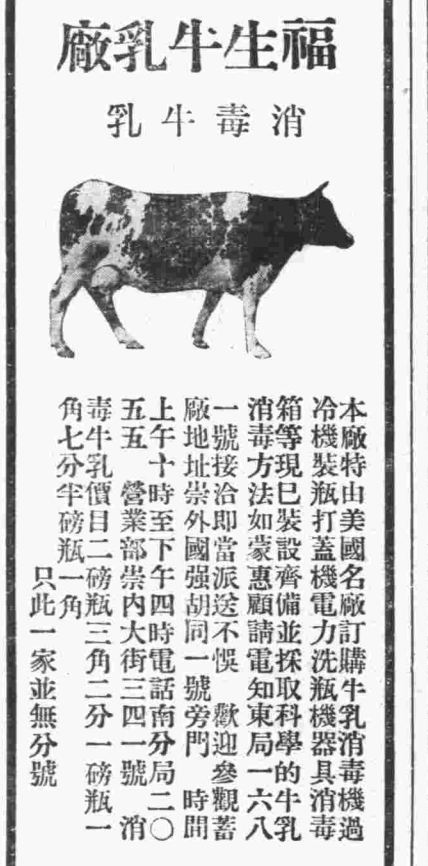 福生牛乳廠
消毒牛乳
本廠特由美國名廠訂購牛乳消毒機過
冷機裝瓶打蓋機電力洗瓶機器具消毒
箱等現已裝設齊備並採取科學的牛乳
消毒方法如蒙惠顧請電知東局一六八
一號接洽即當派送不悞 歡迎參觀蓄
廠地址崇外國强胡同一號旁門 時間
上午十時至下午四時電話南分局二〇
五五 營業部崇內大街三四一號 消
毒牛乳價目二磅瓶三角二分一磅瓶一
角七分半磅瓶一角
只此一家並無分號